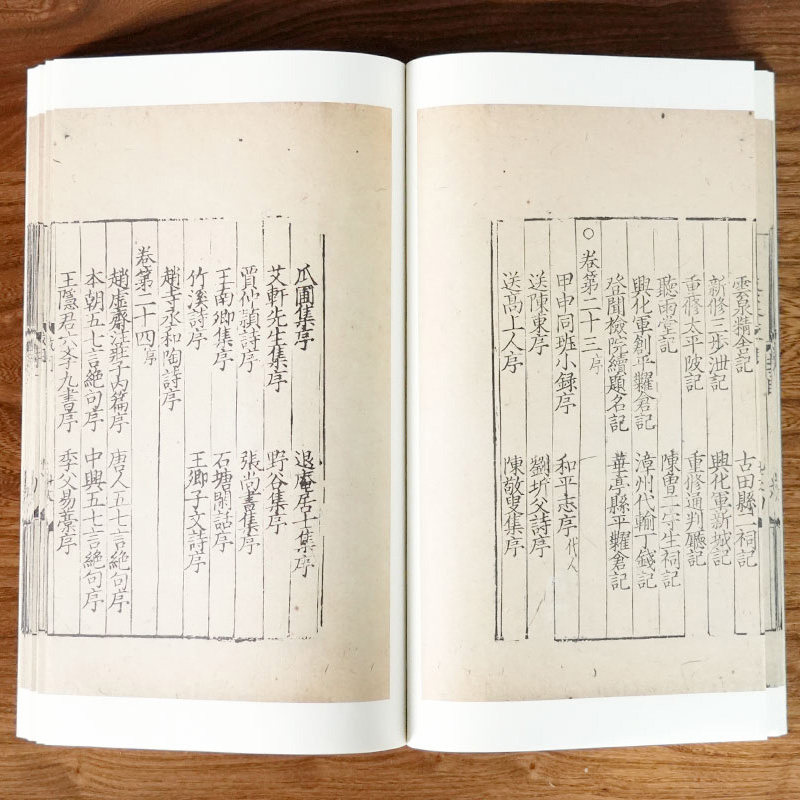 雲泉精舍記 古田縣二祠記
新修三步泄記 興化軍新城記
重修太平陂記 重修通判廳記
聽雨堂記 陳曾二先生祠記
興化軍創平糶倉記 漳州代輸丁錢記
登聞檢院續題名記 華亭縣平糶倉記
○卷第二十三 序
甲申同班小録序 和平志序 代人
送陳東序 劉圻父詩序
送高上人序 陳敬叟集序
瓜圃集序 退庵居士集序
艾軒先生集序 野谷集序
賈仲穎詩序 張尚書集序
王南卿集序 石塘閑話序
竹溪詩序 王卿子文詩序
趙寺丞和陶詩序
卷第二十四 序
趙虛齋注莊子内篇序 唐人五七言絶句序
本朝五七言絶句序 中興五七言絶句序
王隱君六斈九書序 季父易藁序